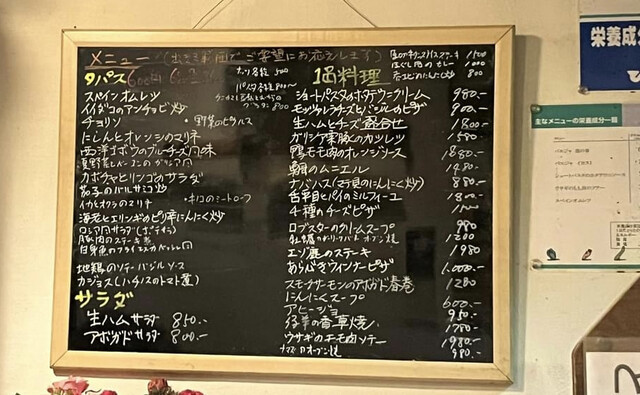 メニュー (出来る範囲でご要望にお応えします)
タパス
スペインオムレツ
イイダコのアンチョビ炒
チョリソ
・野菜のピクルス
にしんとオレンジのマリネ
西洋ゴボウのブルーチーズ風味
カボチャとリンゴのサラダ
茄子のバルサミコ炒
・キノコのミートローフ
イカとオクラのマリネ
海老とエリンギのピリ辛にんにく炒
ロシア風サラダ(ポテサラ)
豚肉のステーキ
地鶏のソテーバジルソース
カジョス(ハチノスのトマト煮)
サラダ
生ハムサラダ 850.-
アボガドサラダ 800.-
500
800
1500
1000
800
一品料理
ショートパスタのポテクリーム 980.-
モッツァレラチーズとバジルのピザ 900.-
生ハムとチーズ盛合せ 1800.-
ガリシア栗豚のカツレツ 1580.-
鴨モモ肉のオレンジソース 1880.-
鯛のムニエル 1480.-
ナバハス(マテ貝のにんにく炒) 880.-
舌平目とパイのミルフィーユ 1800.-
4種のチーズピザ
ロブスターのクリームスープ 980
1200
エゾ鹿のステーキ 1980
あらびきウインナーピザ 1000.-
スモークサーモンのアボガド春巻 1280
にんにくスープ 600.-
アヒージョ 950.-
仔羊の香草焼 1780
ウサギのモモ肉ソテー 1980.-
オーブン焼 980.-
栄養成分
主なメニューの栄養成分一覧